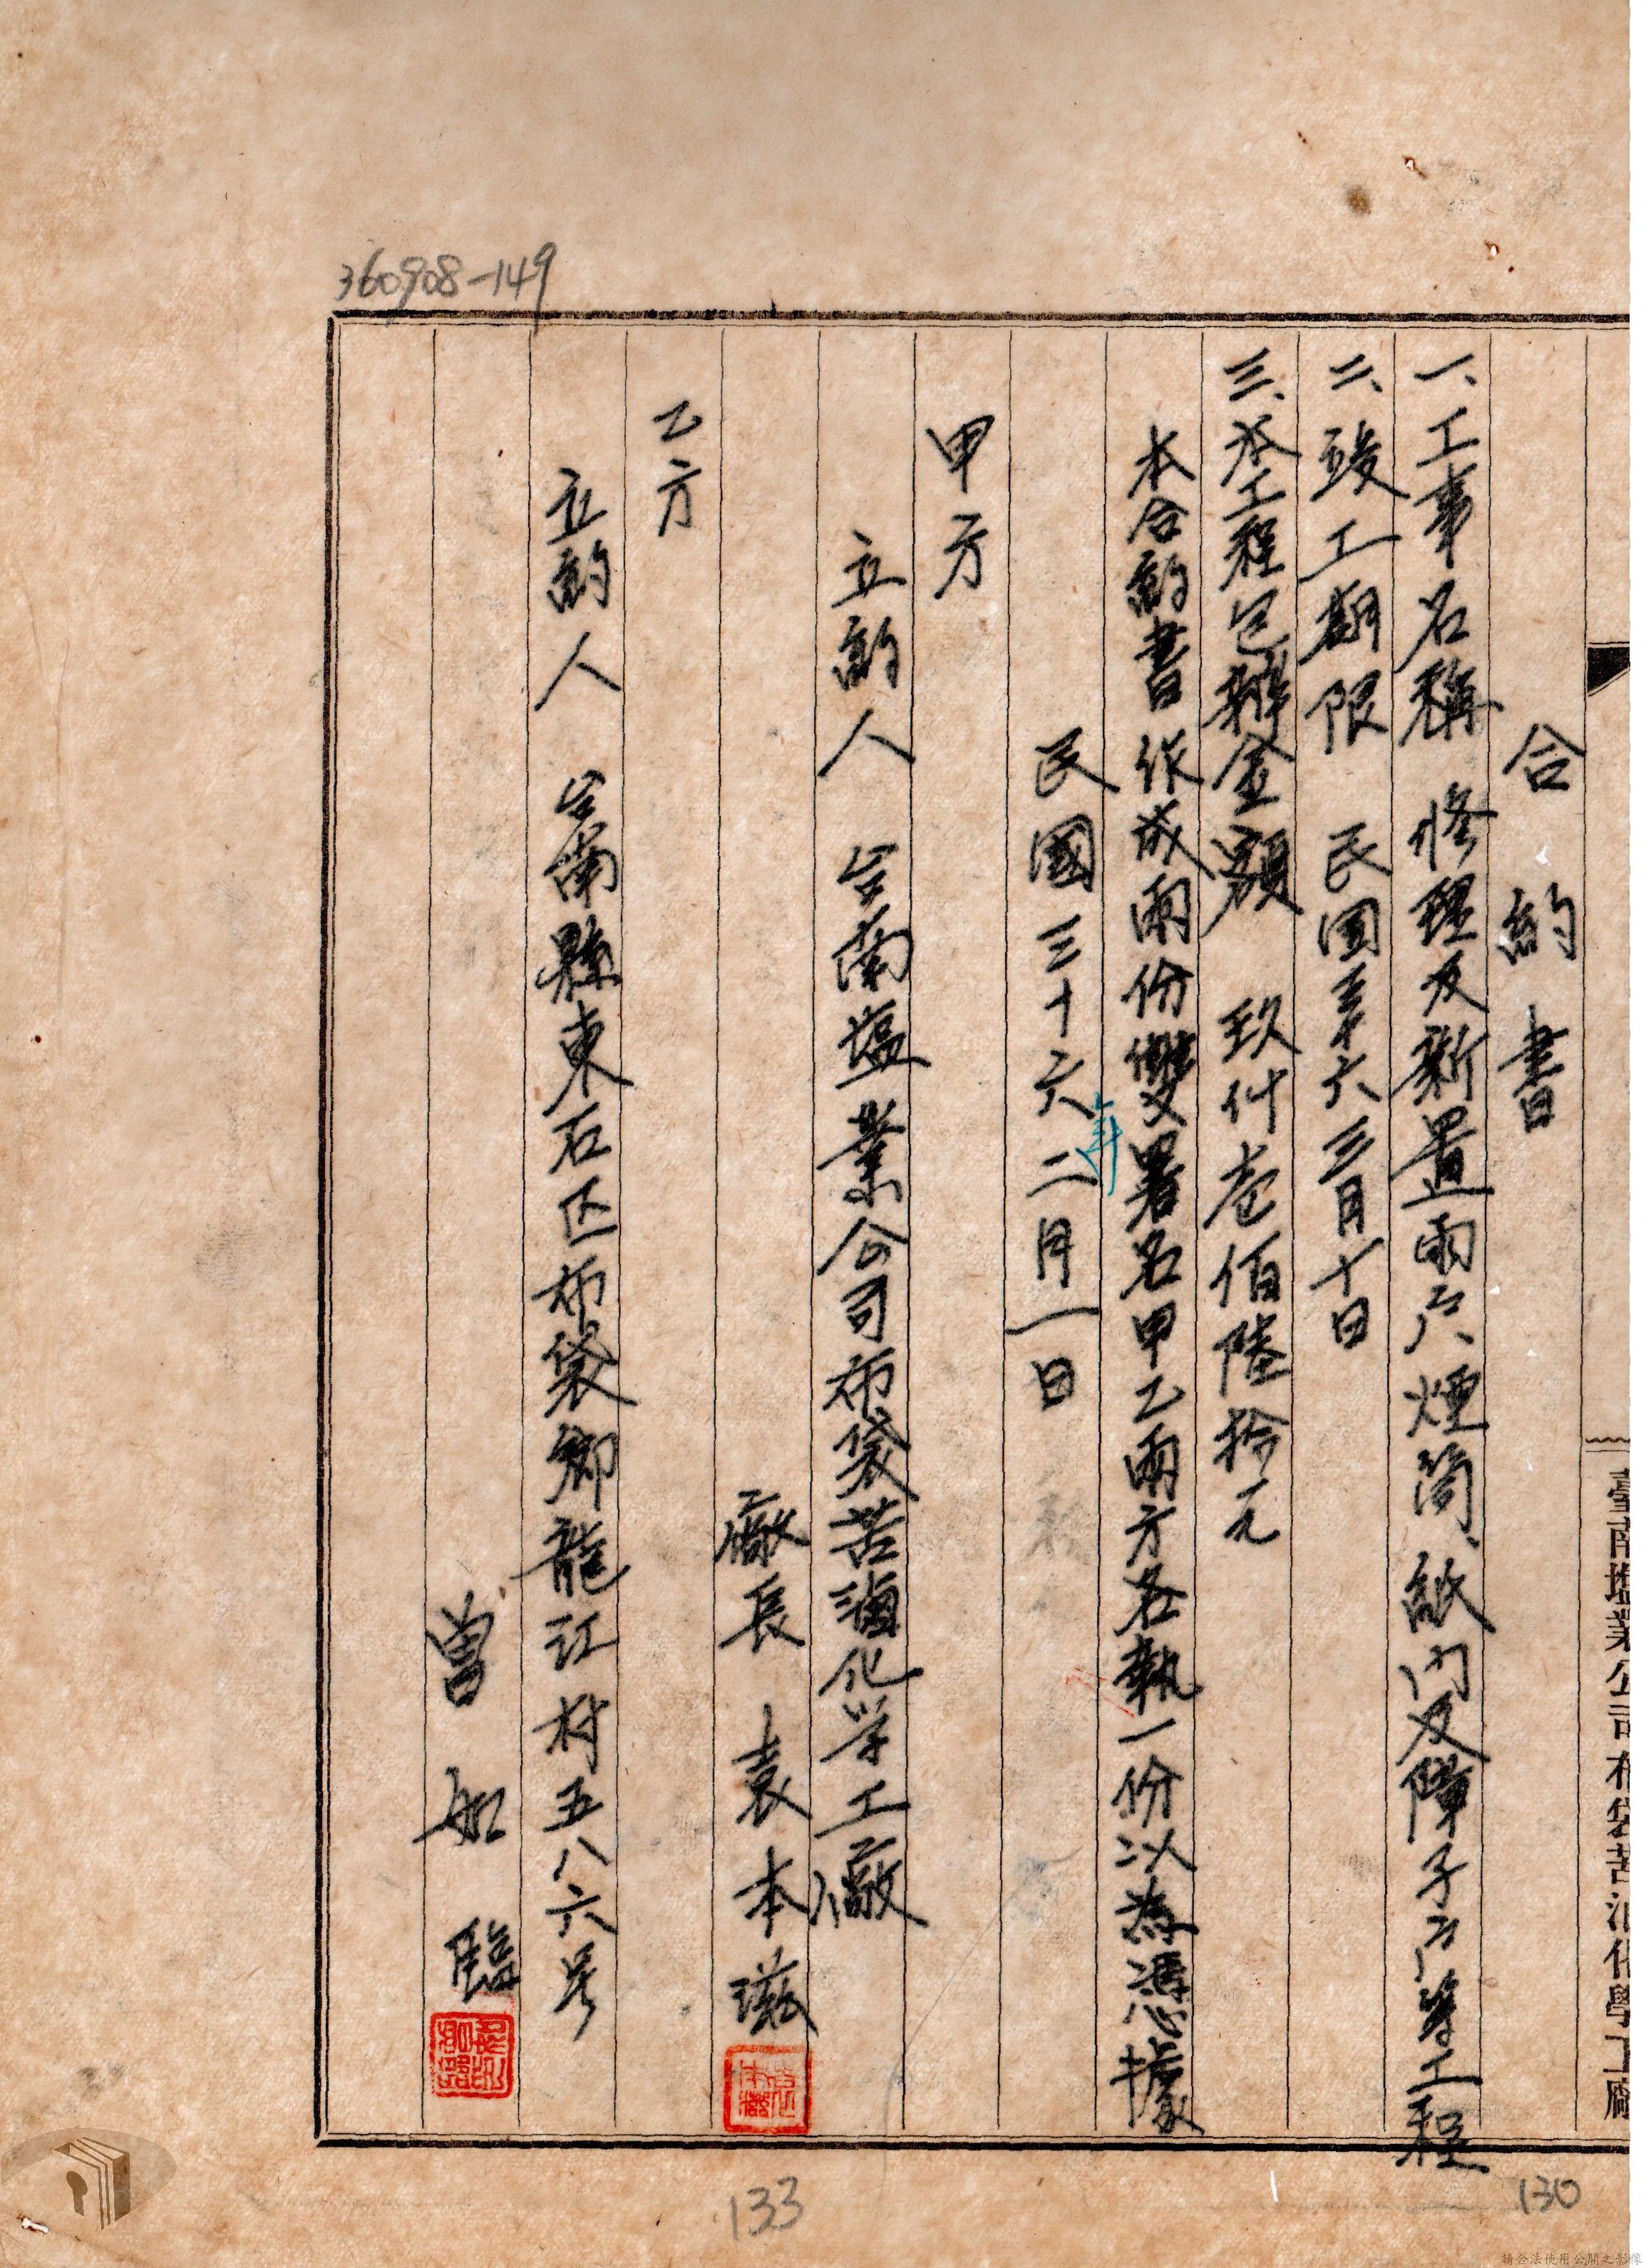 360908-149
臺南塩業公司布袋苦汕化學工廠
合約書
一、工事名稱 修理及新置雨戶、煙筒、紙門及障子戶等工程
二、竣工期限 民国卅六三月十日
三、本工程包辦金額 玖仟壱佰陸拾元
本合約書作成兩份雙署名甲乙兩方各執一份以為憑據
民國三十六年二月一日
甲方
立約人 台南塩業公司布袋苦滷化学工廠
廠長 袁本滋
乙方
立約人 台南縣東石区布袋鄉龍江村五八六号
曾如臨
133
130
請合法使用公開之影像